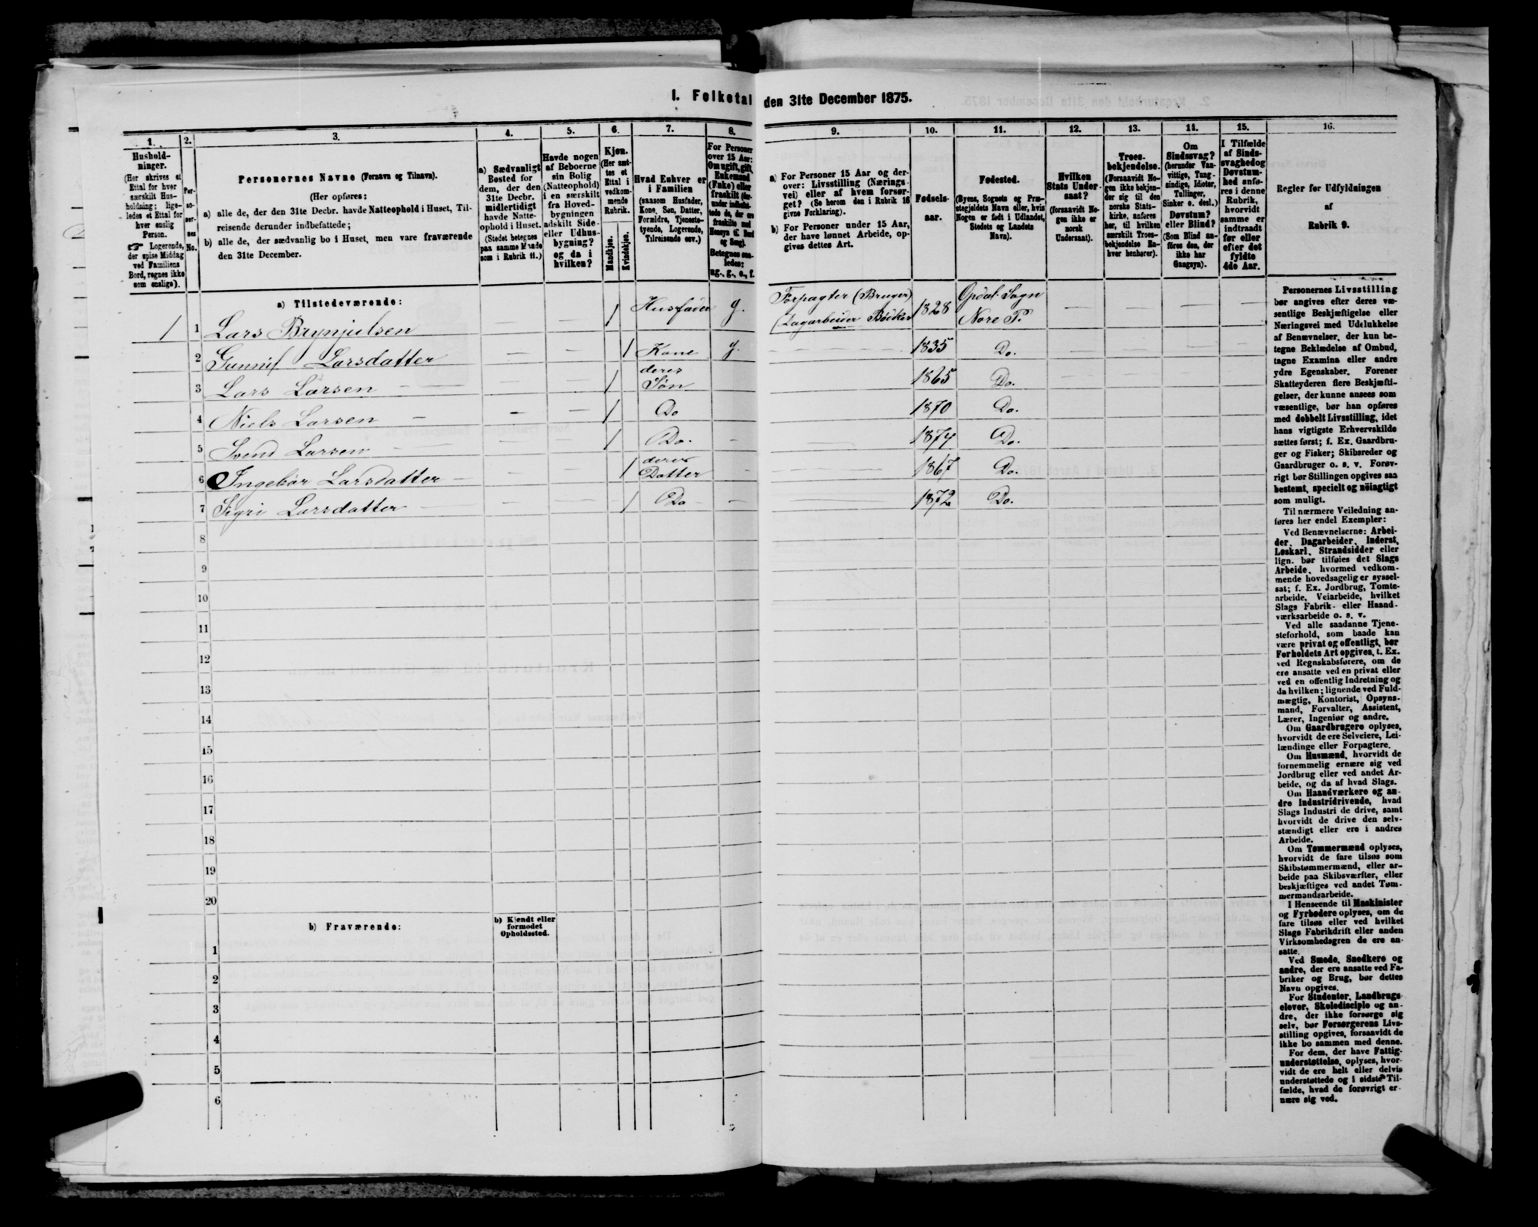 I. Folketal den 31te December 1875.
1. 2. 3. 4. 5. 6. 7. 8. 9. 10. 11. 12. 13. 14. 15. 16.
Hushold-
ninger.
(Her skrives et
Ettal for hver
særskilt Hus-
holdning; lige-
ledes et Ettal for
hver enslig
Person.
☛ Logerende,
der spise Middag
ved Familiens
Bord, regnes ikke
som enslige).
Per-
so-
ner-
nes
No.
Personernes Navne (Fornavn og Tilnavn).
(Her opføres:
a) alle de, der den 31te Decbr. havde Natteophold i Huset, Til-
reisende derunder indbefattede;
b) alle de, der sædvanlig bo i Huset, men vare fraværende
den 31te December.
a) Sædvanligt
Bosted for
dem, der den
31te Decbr.
midlertidigt
havde Natte-
ophold i Huset.
(Stedet betegnes
paa samme Maade
som i Rubrik 11.)
Havde nogen
af Beboerne
sin Bolig
(Natteophold)
i en særskilt
fra Hoved-
bygningen
adskilt Side-
eller Udhus-
bygning?
og da i
hvilken?
Kjøn.
(Her sæt-
tes et
Ettal i
vedkom-
mende
Rubrik.
Mandkjøn.
Kvindekjøn.
Hvad Enhver er
i Familien
(saasom Husfader,
Kone, Søn, Datter,
Forældre, Tjeneste-
tyende, Logerende,
Tilreisende osv.)
For Personer
over 15 Aar:
Om ugift, gift,
Enkemand
(Enke) eller
fraskilt
Betegnes saa-
ledes:
ug., g., e., f.
a) For Personer 15 Aar og der-
over: Livsstilling (Nærings-
vei) eller af hvem forsør-
get? (Se herom den i Rubrik 16
givne Forklaring).
b) For Personer under 15 Aar,
der have lønnet Arbeide, op-
gives dettes Art.
Fødsels-
aar.
Fødested.
(Byens, Sognets og Præ-
stegjeldets Navn eller, hvis
Nogen er født i Udlandet,
Stedets og Landets
Navn).
Hvilken
Stats Under-
saat?
(forsaavidt No-
gen ikke er
norsk
Undersaat).
Troes-
bekjendelse.
(Forsaavidt No-
gen ikke bekjen-
der sig til den
norske Stats-
kirke, anføres
her, til hvilken
særskilt Troes-
bekjendelse Ra-
hver henhører).
Om
Sindssvag?
(herunder Van-
vittige, Tung-
sindige, Idioter,
Tullinger,
Sinker o. desl.)
Døvstum?
eller Blind?
(Som Blind an-
føres den, der
ikke har
Gangsyn).
I Tilfælde
af Sinds-
svaghed og
Døvstum-
hed anfø-
res i denne
Rubrik,
hvorvidt
samme er
indtraadt
før eller
efter det
fyldte
4de Aar.
Regler for Udfyldningen
af
Rubrik 9.
a) Tilstedeværende:
1 1 Lars Brynjulsen 1 Husfader g. Forpagter (Bruger) (Dagarbeider 1828 Opdal Sogn Nore P.
2 Larsdatter 1 Kone g. 1835 Do.
3 Lars Larsen 1 deres Søn 1865 Do.
4 Niels Larsen 1 Do 1870 Do.
5 Svend Larsen 1 Do. 1874 Do.
6 Ingebør Larsdatter 1 deres Datter 1867 Do.
7 Sigri Larsdatter 1 Do 1872 Do.
8
9
10
11
12
13
14
15
16
17
18
19
20
b) Fraværende:
b) Kjendt eller
formodet
Opholdssted.
1
2
3
4
5
6
Personernes Livsstilling
bør angives efter deres væ-
sentlige Beskjæftigelse eller
Næringsvei med Udelukkelse
af Benævnelser, der kun be-
tegne Beklædelse af Ombud,
tagne Examina eller andre
ydre Egenskaber. Forener
Skatteyderen flere Beskjæfti-
gelser, der kunne ansees som
væsentlige, bør han opføres
med dobbelt Livsstilling, idet
hans vigtigste Erhvervskilde
sættes først; f. Ex. Gaardbru-
ger og Fisker; Skibsreder og
Gaardbruger o. s. v. Forøv-
rigt bør Stillingen opgives saa
bestemt, specielt og nøiagtigt
som muligt.
Til nærmere Veiledning an-
føres her endel Exempler:
Ved Benævnelserne: Arbei-
der, Dagarbeider, Inderst,
Løskarl, Strandsidder eller
lign. bør tilføies det Slags
Arbeide, hvormed vedkom-
mende hovedsagelig er syssel-
sat; f. Ex. Jordbrug, Tomte-
arbeide, Veiarbeide, hvilket
Slags Fabrik- eller Haand-
værksarbeide o. s. v.
Ved alle saadanne Tjene-
steforhold, som baade kan
være privat og offentligt, bør
Forholdets Art opgives, f. Ex.
ved Regnskabsførere, om de
ere ansatte ved en privat eller
ved en offentlig Indretning og
da hvilken; lignende ved Fuld-
mægtig, Kontorist, Opsyns-
mand, Forvalter, Assistent,
Lærer, Ingeniør og andre.
Om Gaardbrugere oplyses,
hvorvidt de ere Selveiere, Lei-
lændinge eller Forpagtere.
Om Husmænd, hvorvidt de
fornemmelig ernære sig ved
Jordbrug eller ved andet Ar-
beide, og da af hvad Slags.
Om Haandværkere og an-
dre Industridrivende, hvad
Slags Industri de drive, samt
hvorvidt de drive den selv-
stændigt eller ere i andres
Arbeide.
Om Tømmermænd oplyses,
hvorvidt de fare tilsøs som
Skibstømmermænd, eller ar-
beide paa Skibsværfter, eller
beskjæftiges ved andet Tøm-
mermandsarbeide.
I Henseende til Maskinister
og Fyrbødere oplyses, om de
fare tilsøs eller ved hvilket
Slags Fabrikdrift eller anden
Virksomhedsgren de ere an-
satte.
Ved Smede, Snedkere og
andre, der ere ansatte ved Fa-
briker og Brug, bør dettes
Navn opgives.
For Studenter, Landbrugs-
elever, Skoledisciple og an-
dre, der ikke forsørge sig
selv, bør Forsørgerens Livs-
stilling opgives, forsaavidt de
ikke bo sammen med denne.
For dem, der have Fattig-
understøttelse, oplyses, hvor-
vidt de ere helt eller delvis
understøttede og i sidste Til-
fælde, hvad de forøvrigt er-
nære sig ved.